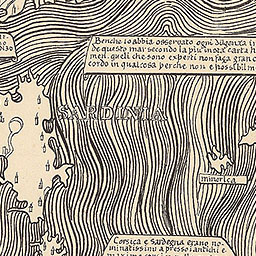 Benche io abbia osservato ogni diligenza in
de questo mar secondo la piu intera carta h
men, queli che sono experti non faga gran c
cordo in qualcosa perche non e possibil m
SARDINIA
minorica
Corsica e Sardegna erano no
minatissimi apresso i antichi e